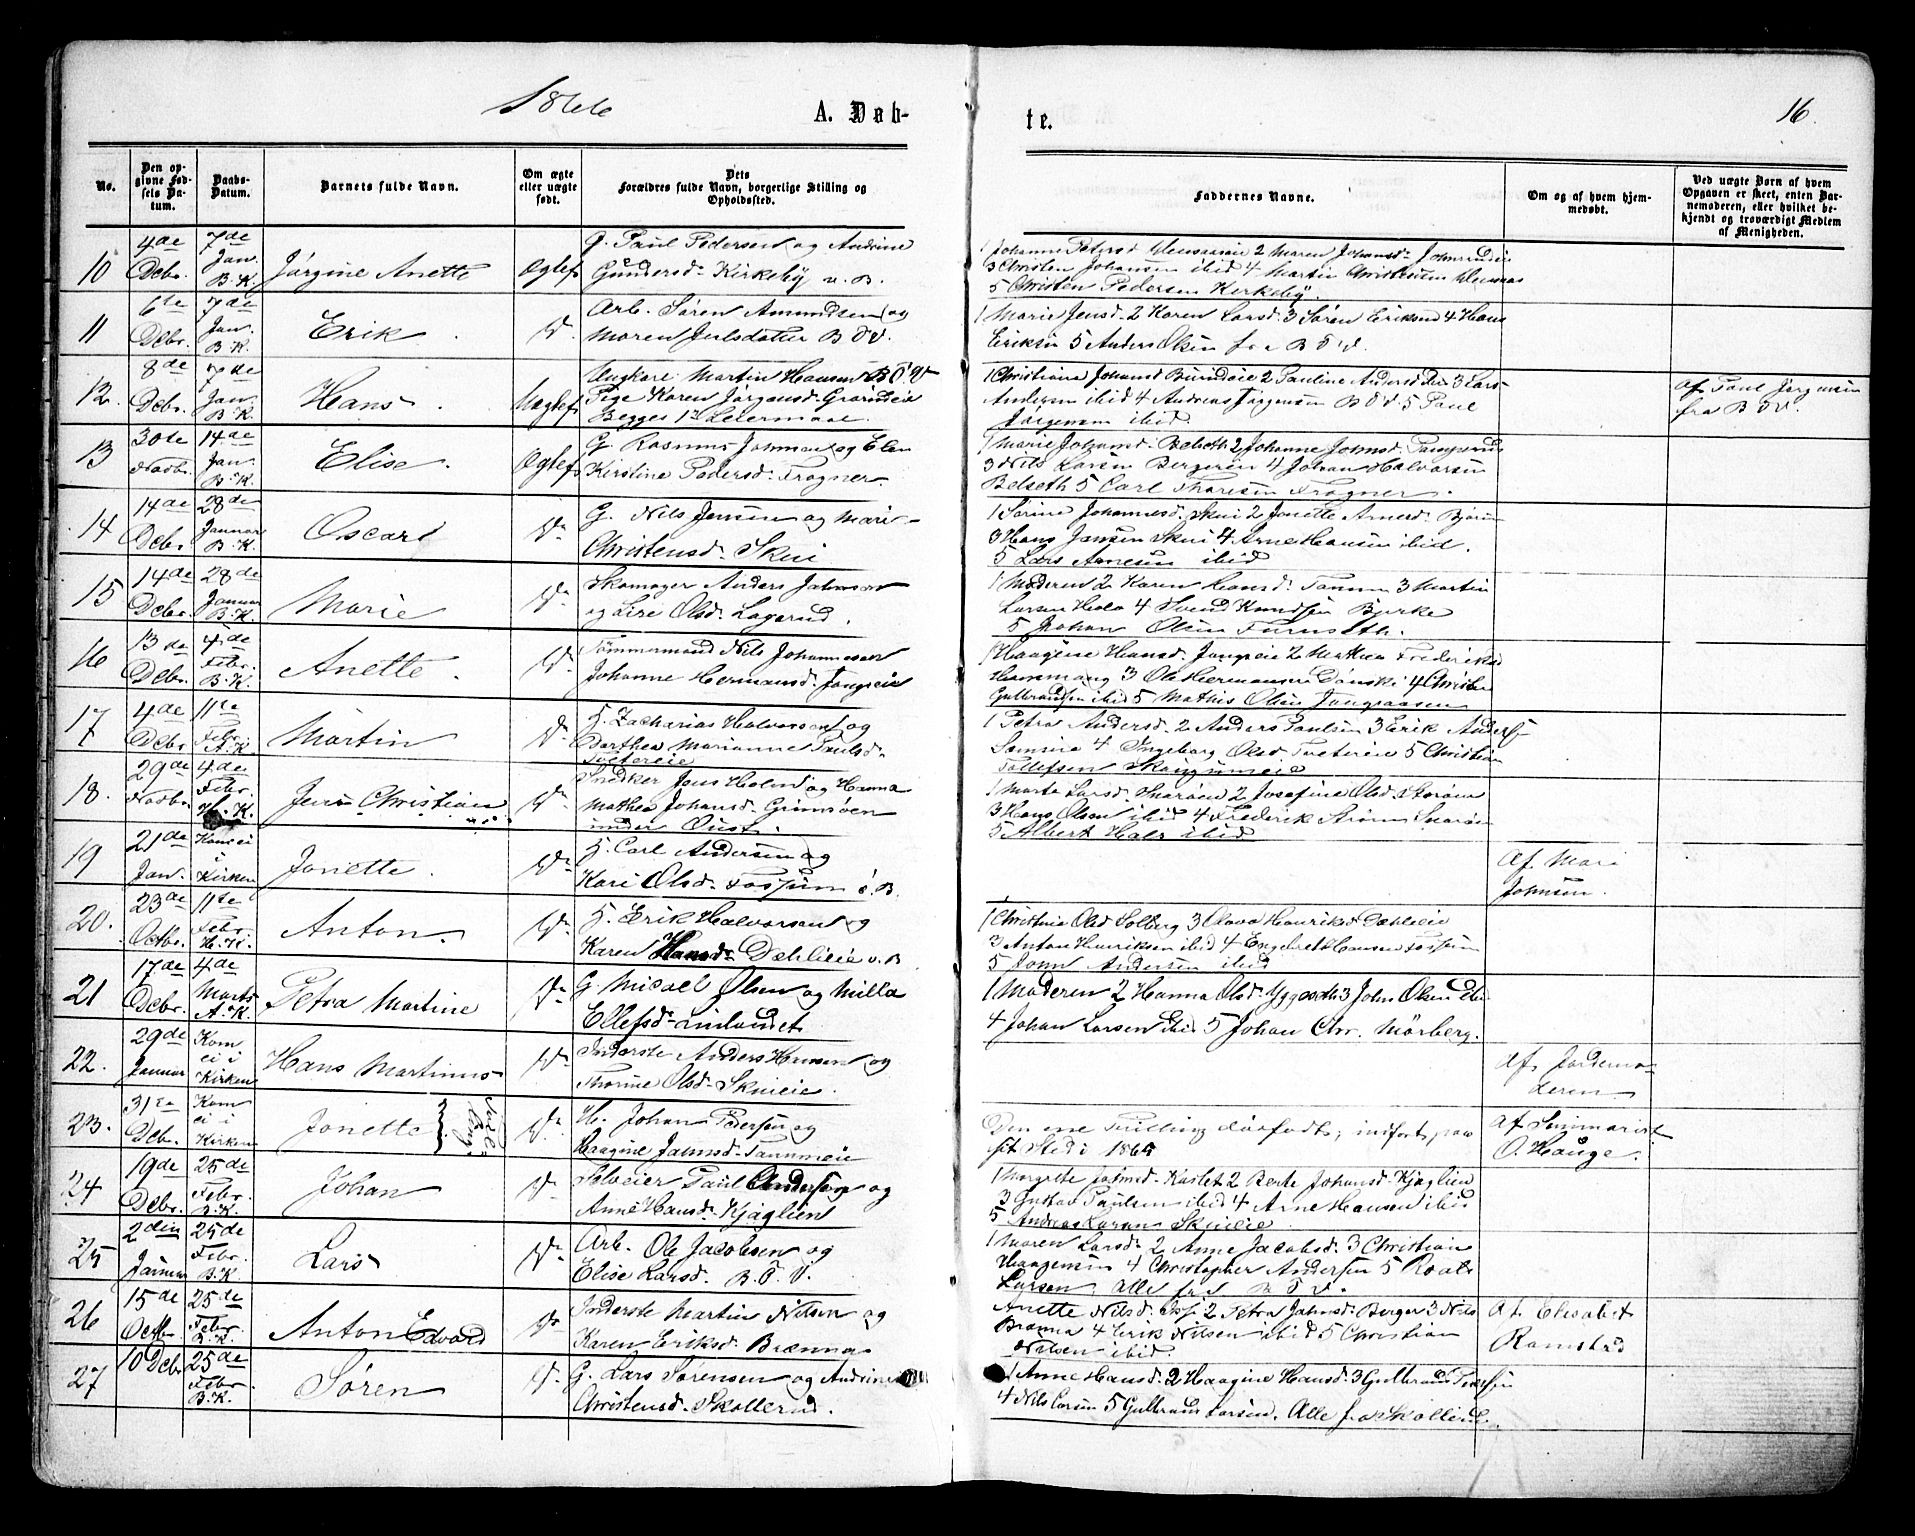 1866
A. Døb-
te.
16.
No.
Den op-
givne Fød-
sels Da-
tum.
Daabs-
Datum.
Barnets fulde Navn.
Om ægte
eller uægte
født.
Dets
Forældres fulde Navn, borgerlige Stilling og
Opholdssted.
Faddernes Navne.
Om og af hvem hjem-
medøbt.
Ved uægte Børn af hvem
Opgaven er skeet, enten Bar-
nemoderen, eller hvilket be-
kjendt og troværdigt Medlem
af Menigheden.
10
4de
Debr.
7de
Jan.
B.K.
Jørgine Anette
Ægtef
G. Paul Pedersen og Andrine
Gundersd. Kirkeby v. B.
3 Christen Johansen ibid 4 Martin Christensen
5 Christen Pedersen Kirkeby.
11
6te
Debr.
7de
Jan.
B.K.
Erik
Do
Arb. Søren Amundsen og
Maren Julsdatter B Ø V.
1 Marie Jensd. 2 Karen Larsd. 3 Søren Eriksen 4 Hans
Eriksen 5 Anders Olsen fra B Ø V.
12.
8de
Debr.
7de
Jan.
B.K.
Hans
Uægtef
Ungkarl Martin Hansen B.Ø.V
Pige Karen Jørgensd. Grøndeie
Begges 1ste Leiermaal
1 Christiane Johansd 2 Pauline Andersd. 3 Lars
Andersen ibid 4 Andreas Jørgensen B Ø V. 5 Paul
Jørgensen ibid.
af Paul Jørgensen
fra B Ø V.
13
30te
Novbr.
14de
Jan.
B.K.
Elise.
Ægtef
G. Rasmus Johnsen og Elen
Kirstine Pedersd. Frogner.
1 Marie Johansd. Belseth 2 Johanne Johnsd.
3 Nils Larsen Bergerein 4 Johan Halvorsen
Belseth 5 Carl Thoresen Frogner.
14
14de
Debr.
28de
Januar
B.K.
Oscar
Do
G. Nils Jensen og Mari
Christensd. Skui
1 Sørine Johannesd. Skui 2 Jonette Arnesd. Bjørum
3 Hans Jansen Skui 4 Arne Hansen ibid.
5 Lars Arnesen ibid
15
14de
Debr.
28de
Januar
B.K.
Marie
Do
Skomager Anders Johnsen
og Lise Olsd. Løgerud.
1 Moderen 2 Karen Hansd. Tanum 3 Martin
Larsen Holo 4 Svend Knudsen Bjerke
5 Johan Olsen Furuseth.
16
13de
Debr.
4de
Febr.
B.K.
Anette.
Do
Tømmermand Nils Johannesen
Johanne Hermansd. Jongseie
1 Haagine Hansd. Jongseie 2 Mathea Frederiksd
Hammang 3 Ole Hermansen Dønski 4 Christen
Gulbrandsen ibid 5 Mathis Olsen Jongsaasen
17
4de
Debr.
11te
Febr.
A.K.
Martin
Do
H. Zacharias Halvorsen og
Dorthea Marianne Paulsd.
Tostereie
1 Petra Andersd. 2 Anders Paulsen 3 Erik Anders
4 Ingeborg Olsd Tostereie 5 Christian
Tollefsen Skougumeie
18.
29de
Novbr.
4de
Febr.
H.K.
Jens Christian
Do
Snedker Jens Holm og Hanna
Mathea Johansd. Grimsøen
under Oust.
1 Marte Larsd. Snarøen 2 Josefine Olsd. Storøen
3 Hans Olsen ibid 4 Frederik Strøm Snarøen
5 Albert Hals ibid
19
21de
Jan.
Kom ei
i
Kirken
Jonette.
Do
H. Carl Andersen og
Kari Olsd. Fossum v. B.
af Mari
Johnsen.
20.
23de
Octbr.
11te
Febr.
H.K.
Anton.
Do
H. Erik Halvorsen og
Karen Hansd. Dehlieie v. B
1 Christine Olsd Solberg 3 Olava Henriksd. Dæhlieie
3 Anton Henriksen ibid 4 Engebret Hansen Fossum
5 John Andersen ibid
21
17de
Debr.
4de
Marts
A.K.
Petra Martine
Do
G. Micael Olsen og Milla
Ellefsd.
1 Moderen 2 Hanna Olsd. Yggeseth 3 John Olsen ibid
4 Johan Larsen ibid 5 Johan Chr. Mørberg.
22.
29de
Januar
Kom
ei i
Kirken
Hans Martinus
Do
Inderste Anders Hansen og
Thorine Olsd. Skuieie.
af Jordemo-
deren
23.
31te
Debr.
Kom
ei i
Kirken
Jonette
Do
H. Johan Pedersen og
Haagine Johnsd. Tanumeie
Den ene Tvilling dødfødt; indført paa
sit Sted i 1865
af Seminarist
O. Hauge.
24
19de
Debr.
25de
Febr.
B.K.
Johan
Do
Selveier Paul Andersen og
Anne Hansd. Kjaglien
1 Margrethe Johnsd. Kastet 2 Berte Johansd. Kjaglien
3 Gustav Paulsen ibid 4 Arne Hansen ibid
5 Andreas Larsen Skuieie
25
2den
Januar
25de
Febr.
B.K.
Lars
Do
Arb. Ole Jacobsen og
Elise Larsd. B. Ø. V.
1 Maren Larsd. 2 Anne Jacobsd. 3 Christian
Haagensen 4 Christopher Andersen 5 Roald
Larsen, alle fra B Ø V.
26
15de
Octbr
25de
Febr.
B.K.
Anton Edvard
Do
Inderste Martin Nilsen og
Karen Eriksd. Brænna
Anette Nilsd. 2 Petra Johnsd. Berger 3 Nils
Brænna 4 Erik Nilsen ibid 5 Christian
Nilsen ibid.
af Elisabet
Ramstad
27
10 Debr
25de
Febr.
B.K.
Søren
Do
G. Lars Sørensen og Andrine
Christensd. Skollerud.
1 Anne Hansd. 2 Haagine Hansd. 3 Gulbrand Pedersen
4 Nils Larsen 5 Gulbrand Larsen. Alle fra Skollerud